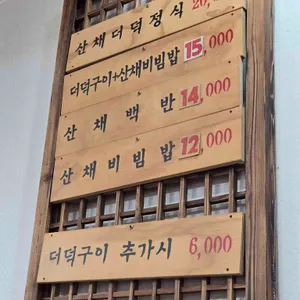 산채더덕정식 20,
더덕구이+산채비빔밥 15,000
산채백반 14,000
산채비빔밥 12,000
더덕구이 추가시 6,000